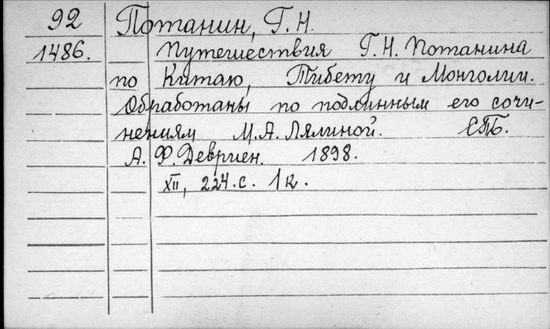 92 Потанин, Г. Н.
1486. Путешествия Г. Н. Потанина
по Китаю, Тибету и Монголии.
Обработаны по подлинным его сочи-
нениям М. А. Лялиной. СПб.
А. Ф. Девриен. 1898.
XII, 224 с. 1 к.